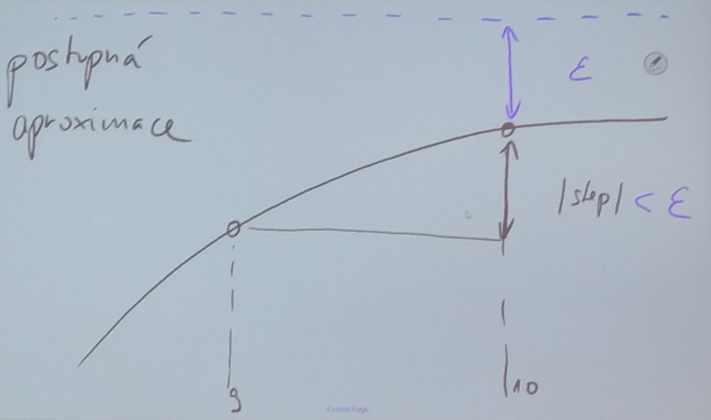 postupná
aproximace
ε
|step| < ε
9
10
Extend Page